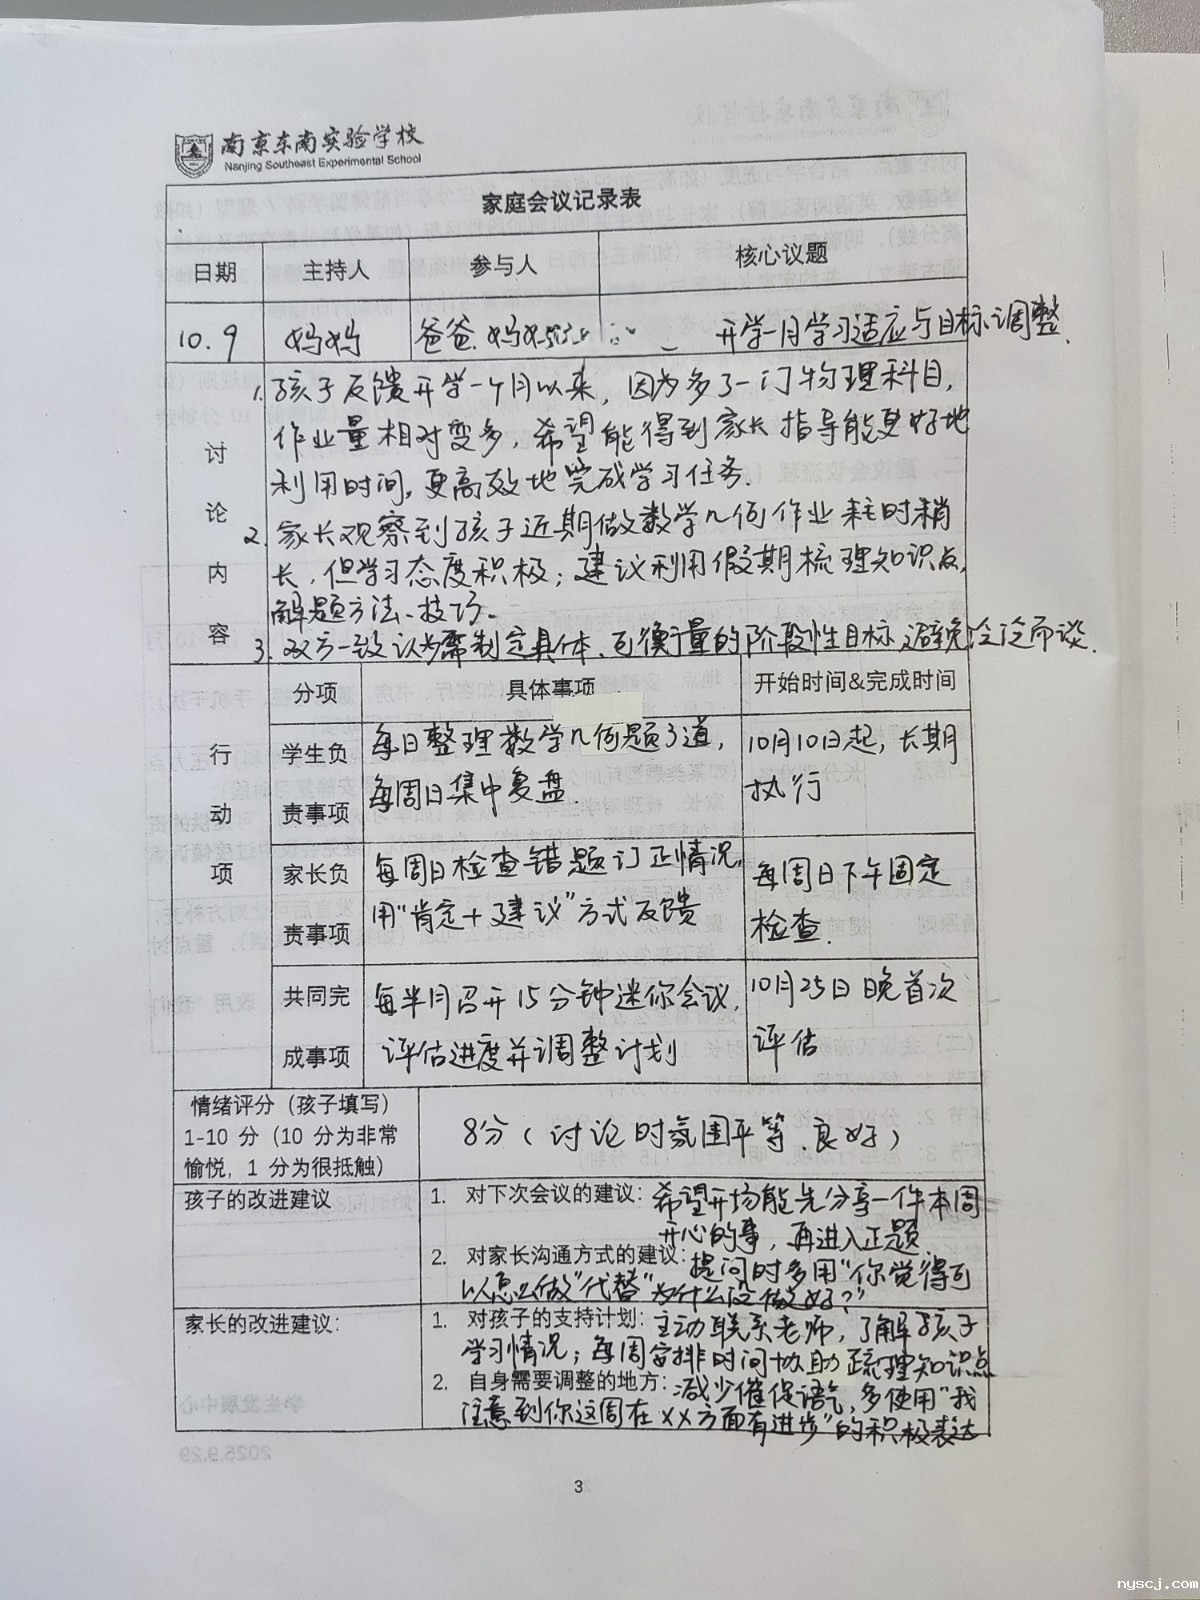 南京东南实验学校
Nanjing Southeast Experimental School
家庭会议记录表
日期 主持人 参与人 核心议题
10.9 妈妈 爸爸、妈妈 开学一月学习适应与目标调整.
讨论内容
1. 孩子反馈开学一个月以来，因为多了一门物理科目，
作业量相对变多，希望能得到家长指导能更好地
利用时间，更高效地完成学习任务.
2. 家长观察到孩子近期做数学几何作业耗时稍
长，但学习态度积极；建议利用假期梳理知识点，
解题方法、技巧。
3. 双方一致认为需制定具体、可衡量的阶段性目标，避免泛泛而谈.
行动项
分项 具体事项 开始时间&完成时间
学生负责事项
每日整理数学几何题3道，
每周日集中复盘
10月10日起，长期
执行
家长负责事项
每周日检查错题订正情况，
用“肯定+建议”方式反馈
每周日下午固定
检查.
共同完成事项
每半月召开15分钟迷你会议，
评估进度并调整计划
10月25日晚首次
评估
情绪评分（孩子填写）
1-10 分（10 分为非常
愉悦，1 分为很抵触）
8分（讨论时氛围平等、良好）
孩子的改进建议
1. 对下次会议的建议：希望开场能先分享一件本周
开心的事，再进入正题
2. 对家长沟通方式的建议：提问时多用“你觉得可
以怎么做”代替“为什么没做好？”
家长的改进建议：
1. 对孩子的支持计划：主动联系老师，了解孩子
学习情况；每周安排时间协助疏理知识点
2. 自身需要调整的地方：减少催促语气，多使用“我
注意到你这周在××方面有进步”的积极表达
3
nyscj.com